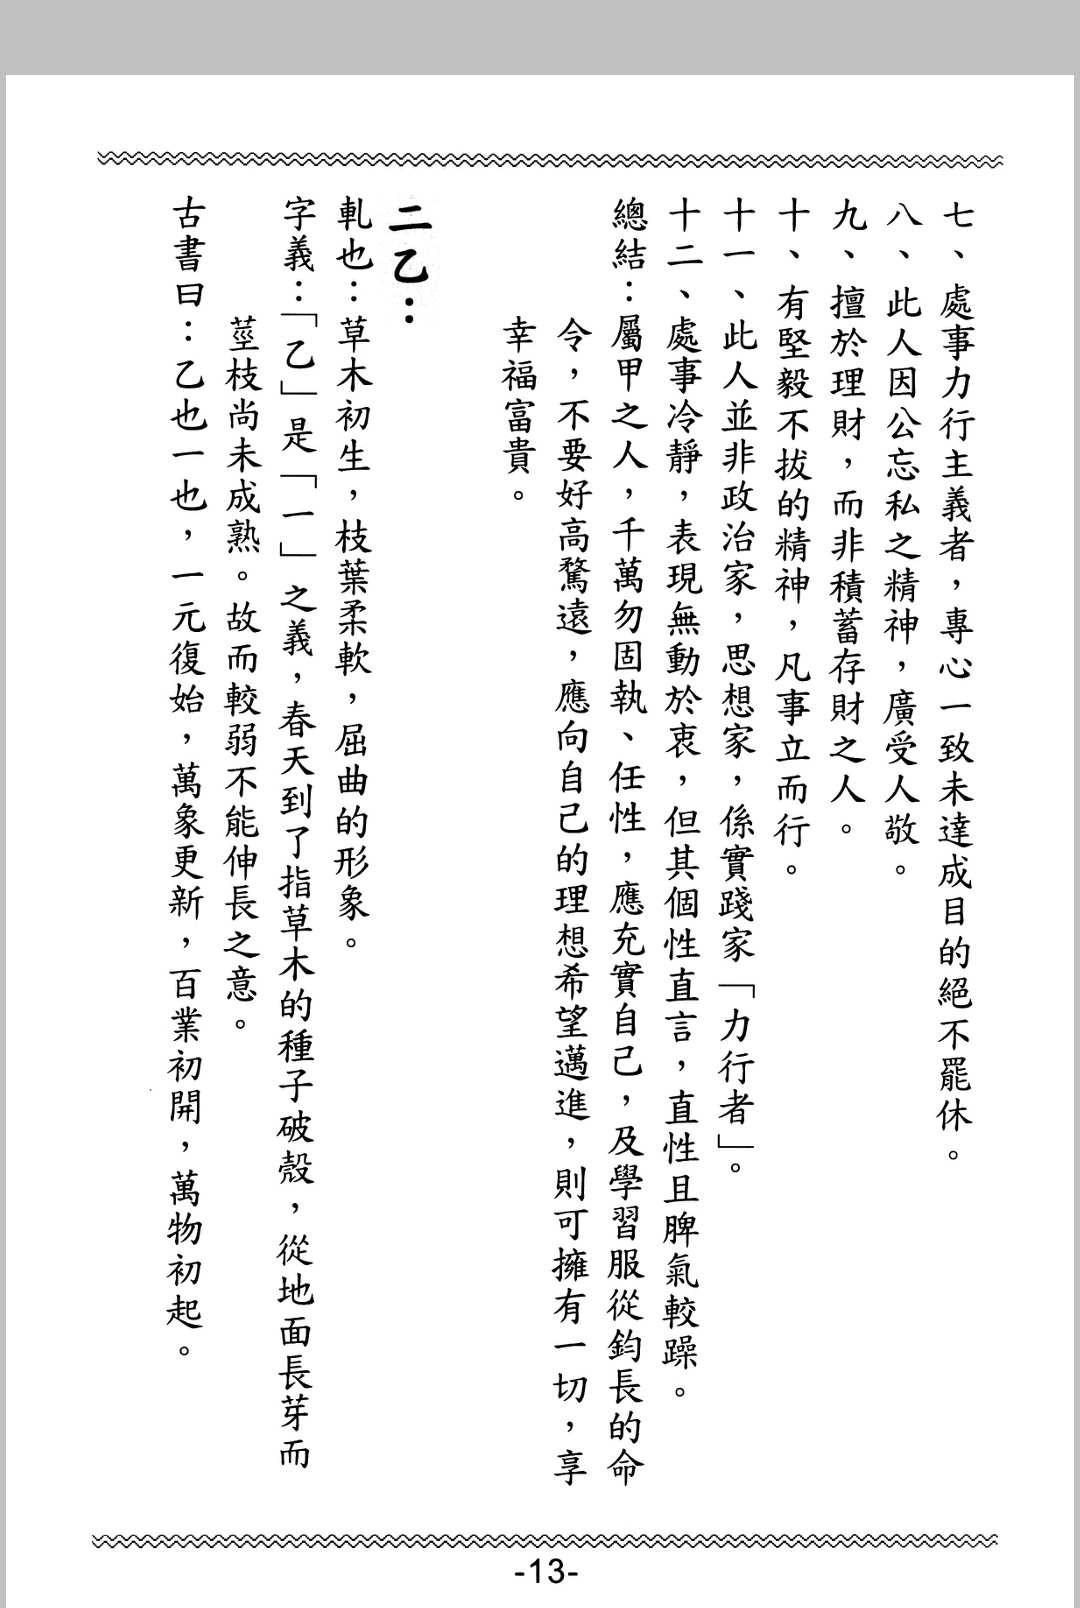 七、處事力行主義者，專心一致未達成目的絕不罷休。
八、此人因公忘私之精神，廣受人敬。
九、擅於理財，而非積蓄存財之人。
十、有堅毅不拔的精神，凡事立而行。
十一、此人並非政治家，思想家，係實踐家「力行者」。
十二、處事冷靜，表現無動於衷，但其個性直言，直性且脾氣較躁。
總結：屬甲之人，千萬勿固執、任性，應充實自己，及學習服從鈞長的命
令，不要好高騖遠，應向自己的理想希望邁進，則可擁有一切，享
幸福富貴。
二乙：
軋也：草木初生，枝葉柔軟，屈曲的形象。
字義：「乙」是「一」之義，春天到了指草木的種子破殼，從地面長芽而
莖枝尚未成熟。故而較弱不能伸長之意。
古書曰：乙也一也，一元復始，萬象更新，百業初開，萬物初起。
-13-